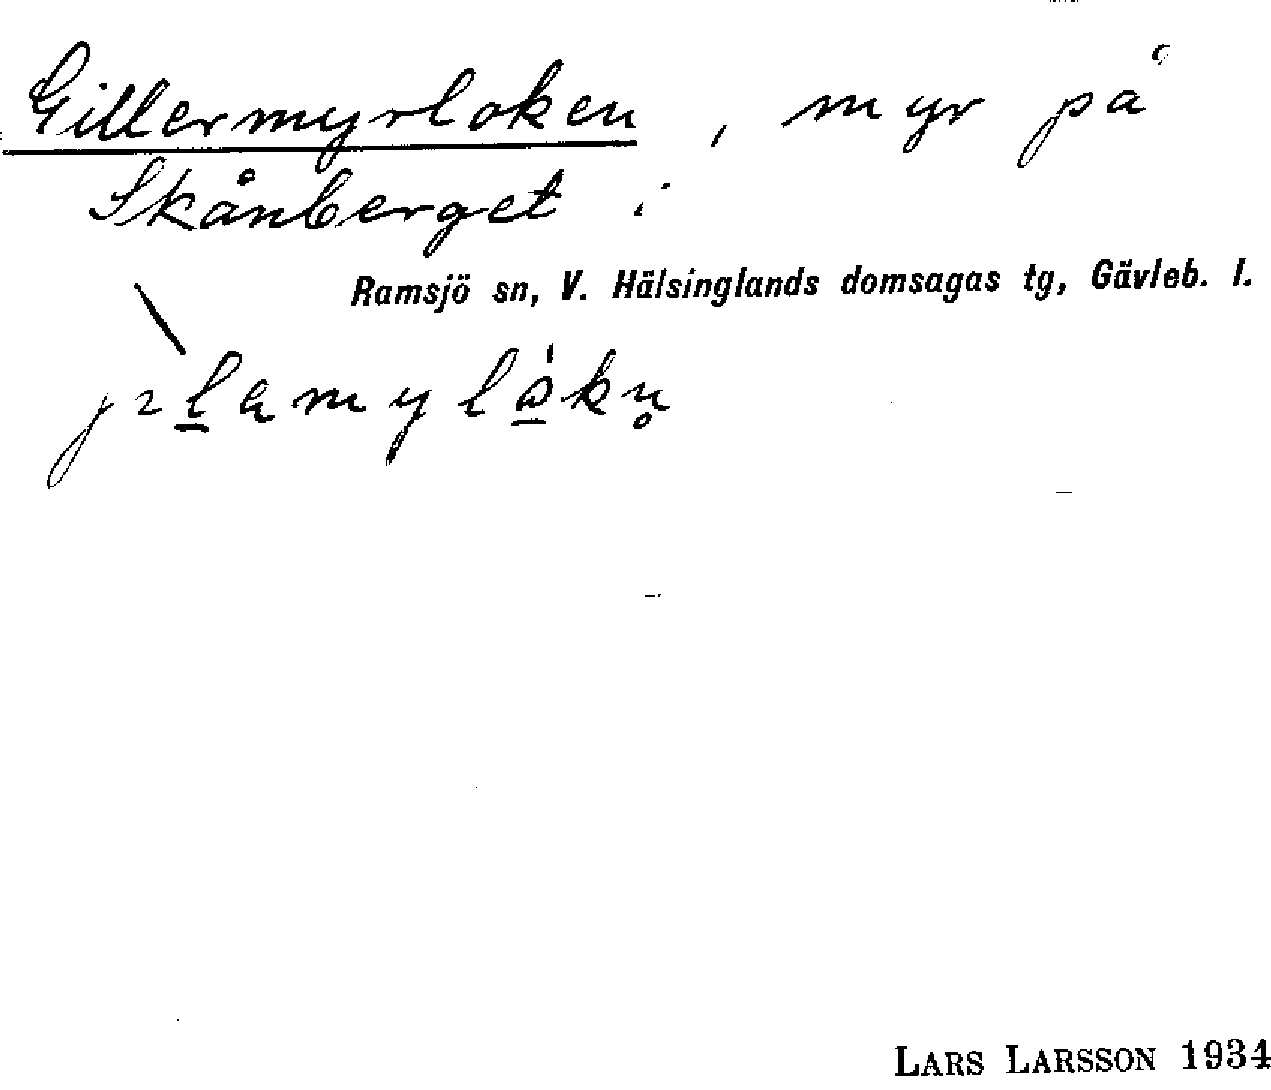 Gillermyrloken, myr på
Skånberget i
Ramsjö sn, V. Hälsinglands domsagas tg, Gävleb. l.
LARS LARSSON 1934